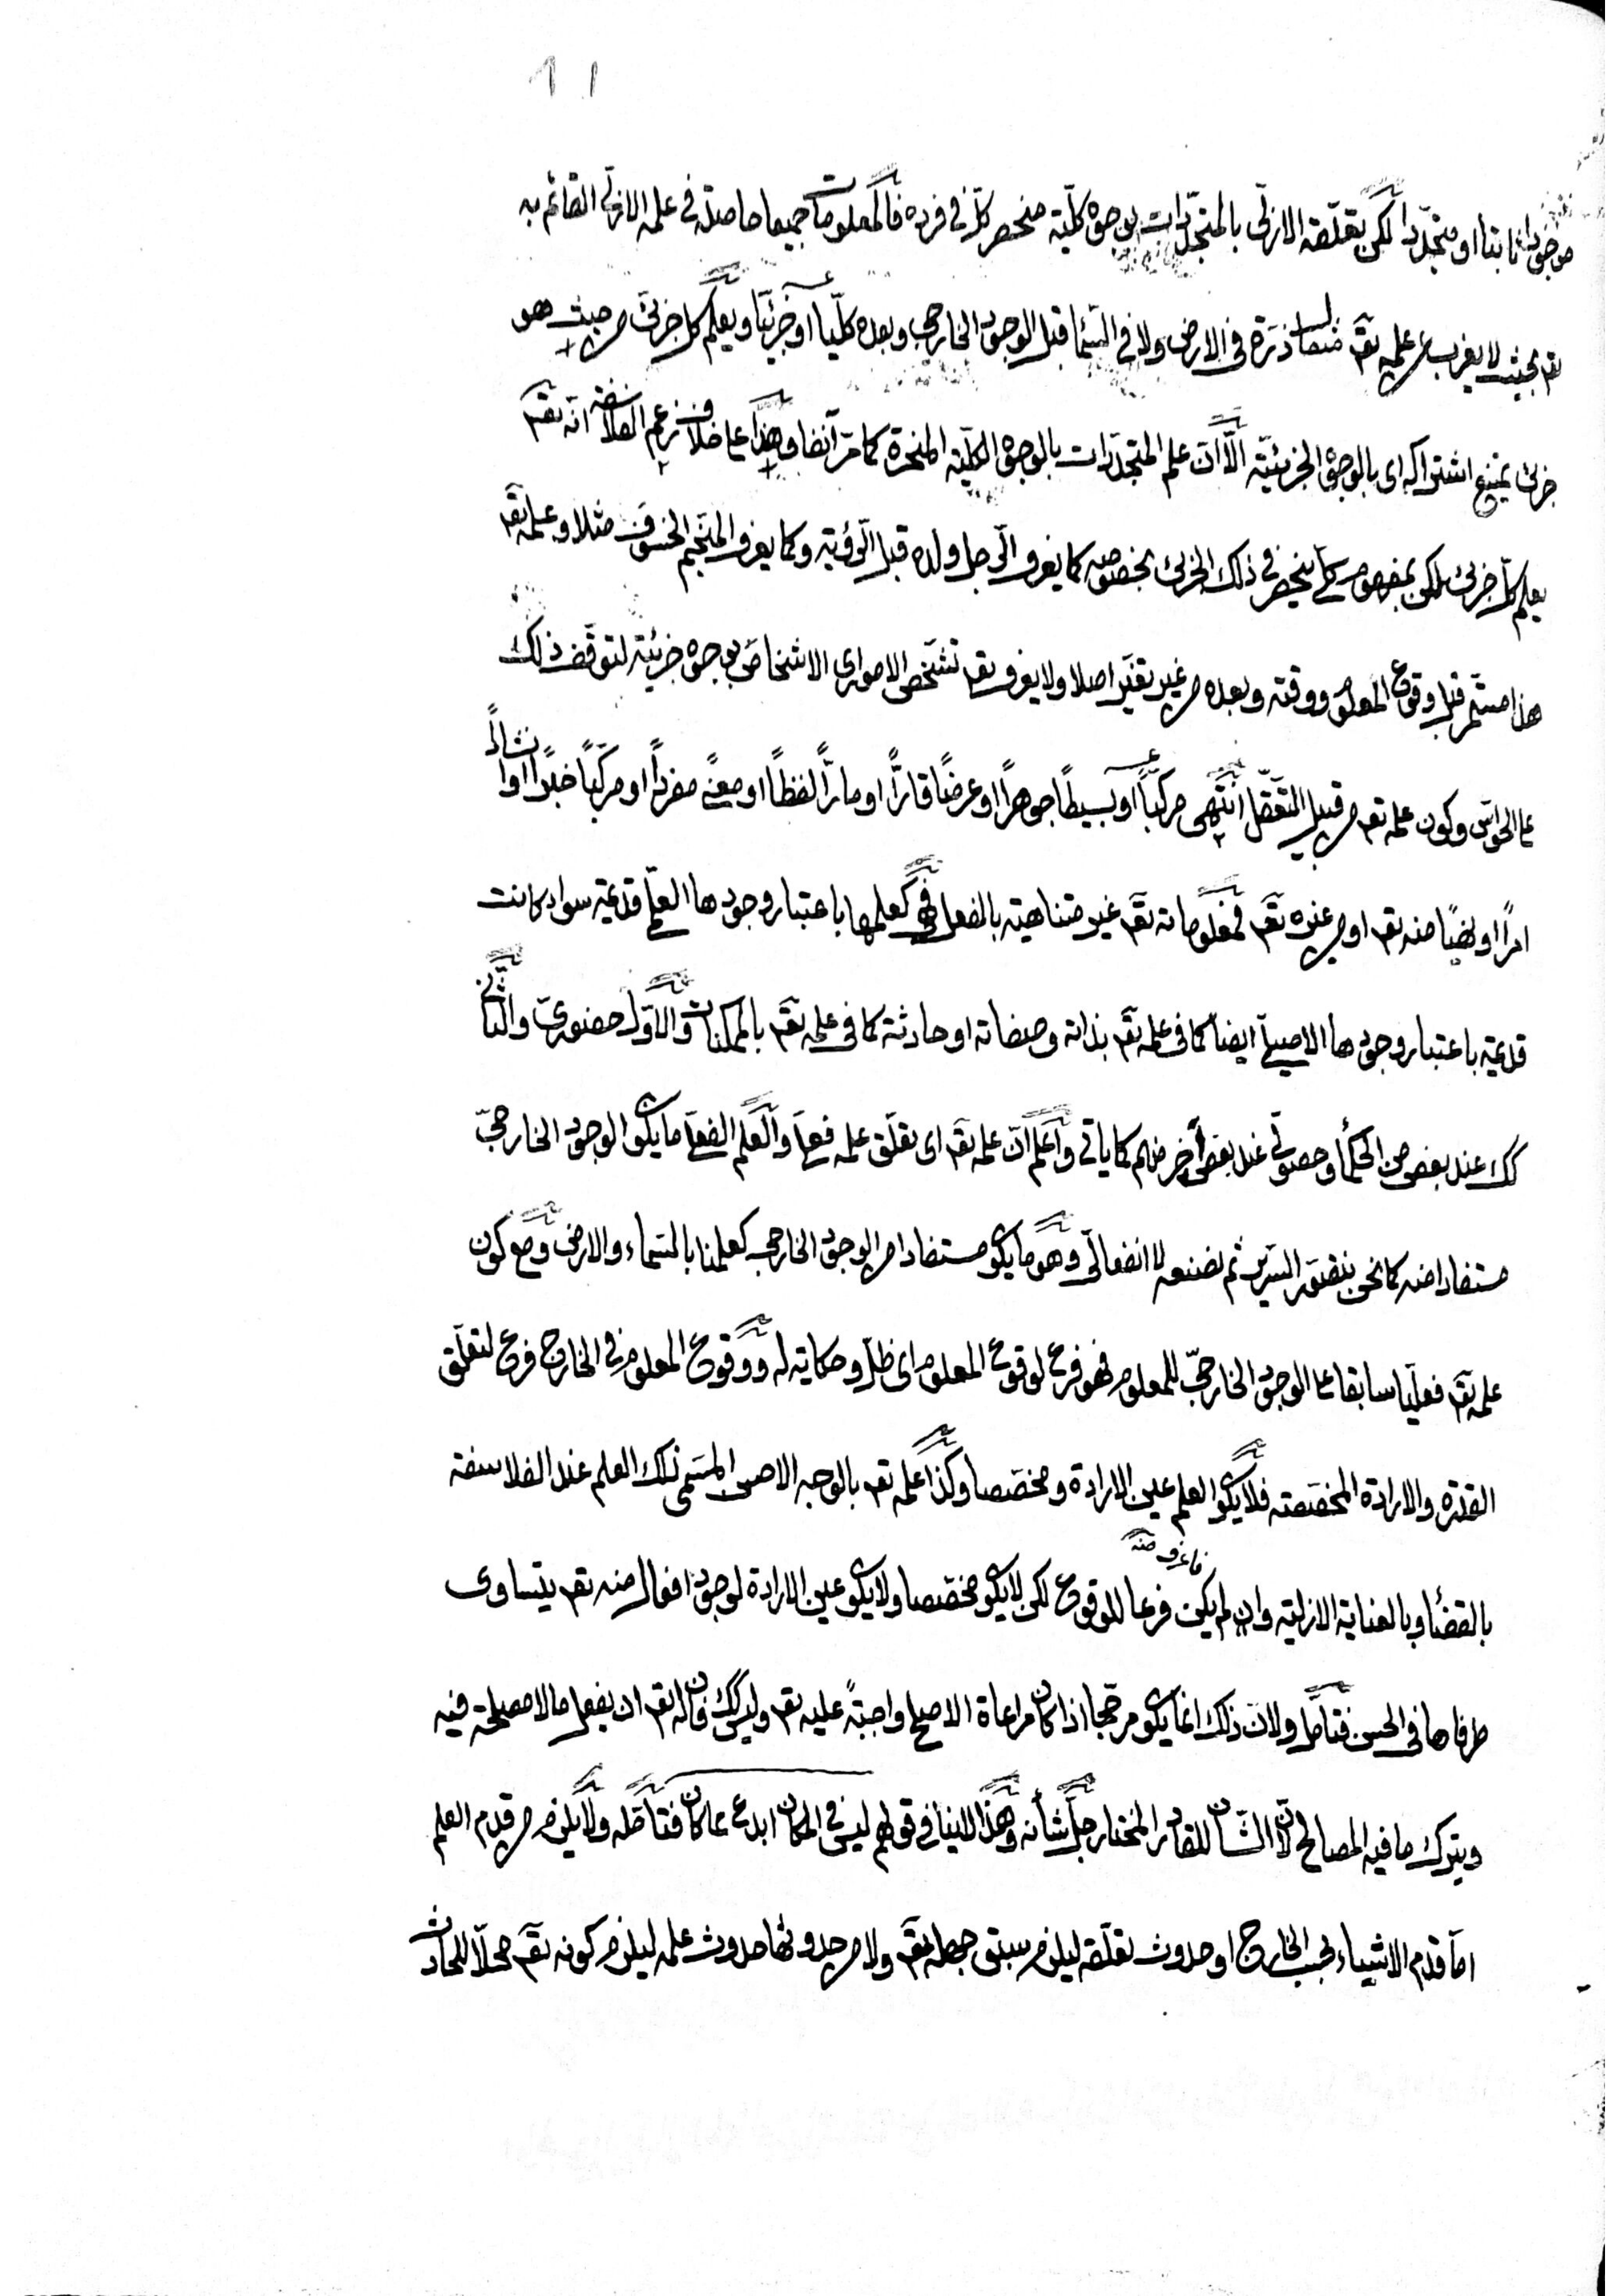 11
موجودا ثابتا او متجددا لكن تعلّقه الازلى بالمتجدّدات بوجوه كلّيّة منحصر كلّ فى فرده فالمعلومات جميعا حاصلة فى علمه الازلى القائم به
تع بحيث لا يعزب عن علمه تع مثقال ذرّة فى الارض ولا فى السّما قبل الوجود الخارجى وبعده كلّيّا او جزئيّا ويعلم كل جزئى من حيث هو
جزئى يمتنع اشتراكه اى بالوجوه الجزئيّة الّا انّ علم المتجدّدات بالوجوه الكلّية كما مرّ آنفا وهذا على خلاف زعم الفلاسفة انّه تع
يعلم كلّ جزئى لكن بمفهوم كلّى ينحصر فى ذلك الجزئى بخصوصه كما يعرف الرّجل ولده قبل الرّؤية وكما يعرف المنجّم الخسوف مثلا وعلمه تع
هذا مستمر قبل وقوع المعلوم ووقته وبعده من غير تغيّر اصلا ولا يعرف تع تشخّص الامور اى الاشخاص بوجوه جزئيّة لتوقّف ذلك
على الحواسّ وكون علمه تع من قبيل التعقّل انتهى مركّبا او بسيطًا جوهرًا او عرضًا قارًّا او مارًّا لفظًا او معنًى مفردًا او مركّبًا خبرًا او انشاءً
امرًا او نهيًا منه تع او من غيره تع فمعلوماته تع غير متناهية بالفعل فهى كعلمها باعتبار وجودها العلمى قديمة سواء كانت
قديمة باعتبار وجودها الاصيلى ايضا كما فى علمه تع بذاته وصفاته او حادثة كما فى علمه تع بالممكنات والاوّل حضورىّ والثانى
كك عند بعض من الحكمأ وحصولى عند بعض آخر منهم كما ياتى واعلم انّ علمه تع اى تعلّق علمه فعلى والعلم الفعلى ما يكون الوجود الخارجىّ
مستفادا منه كما نحن نتصوّر السّرير ثم نصنعه لا انفعالى وهو ما يكون مستفادا من الوجود الخارجى كعلمنا بالسّماء والارض ومع كون
علمه تع فعليّا سابقا على الوجود الخارجىّ للمعلوم فهو فرع لوقوع المعلوم اى ظلّ وحكاية له ووقوع المعلوم فى الخارج فرع لتعلّق
القدرة والارادة المخصّصة فلا يكون العلم عين الارادة ومخصّصا وكذا علمه تع بالوجه الاصلح المسمّى ذلك العلم عند الفلاسفة
فاعرف منه
بالقضأ وبالعناية الازلية وان لم يكن فرعا للوقوع لكن لا يكون مخصّصا ولا يكون عين الارادة لوجود افعال منه تع يتساوى
طرفاها فى الحسن فتامّل ولانّ ذلك انما يكون مرجّحا اذا كان مراعاة الاصلح واجبةً عليه تع وليس كك فانّ له تع ان يفعل ما لا مصلحة فيه
ويترك ما فيه المصالح لانّ الشّأن للقادر المختار جلّ شأنه وهذا لا ينافى قولهم ليس فى الامكان ابدع مما كان فتأمّله ولا يلزم من قدم العلم
امّا قدم الاشياء بحسب الخارج او حدوث تعلّقه ليلزم سبق جهله تع ولا من حدوثها حدوث علمه ليلزم كونه تع محلّا للحادث